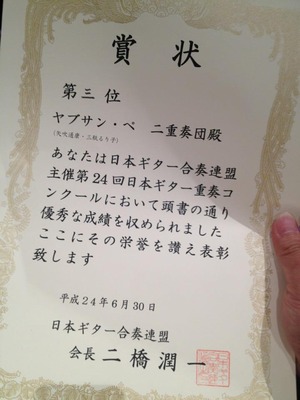 賞状
第三位
ヤブサン・ペ 二重奏団殿
あなたは日本ギター合奏連盟
主催第24回日本ギター重奏コ
ンクールにおいて頭書の通り
優秀な成績を収められました
ここにその栄誉を讃え表彰
致します
平成24年6月30日
日本ギター合奏連盟
会長 二橋潤一